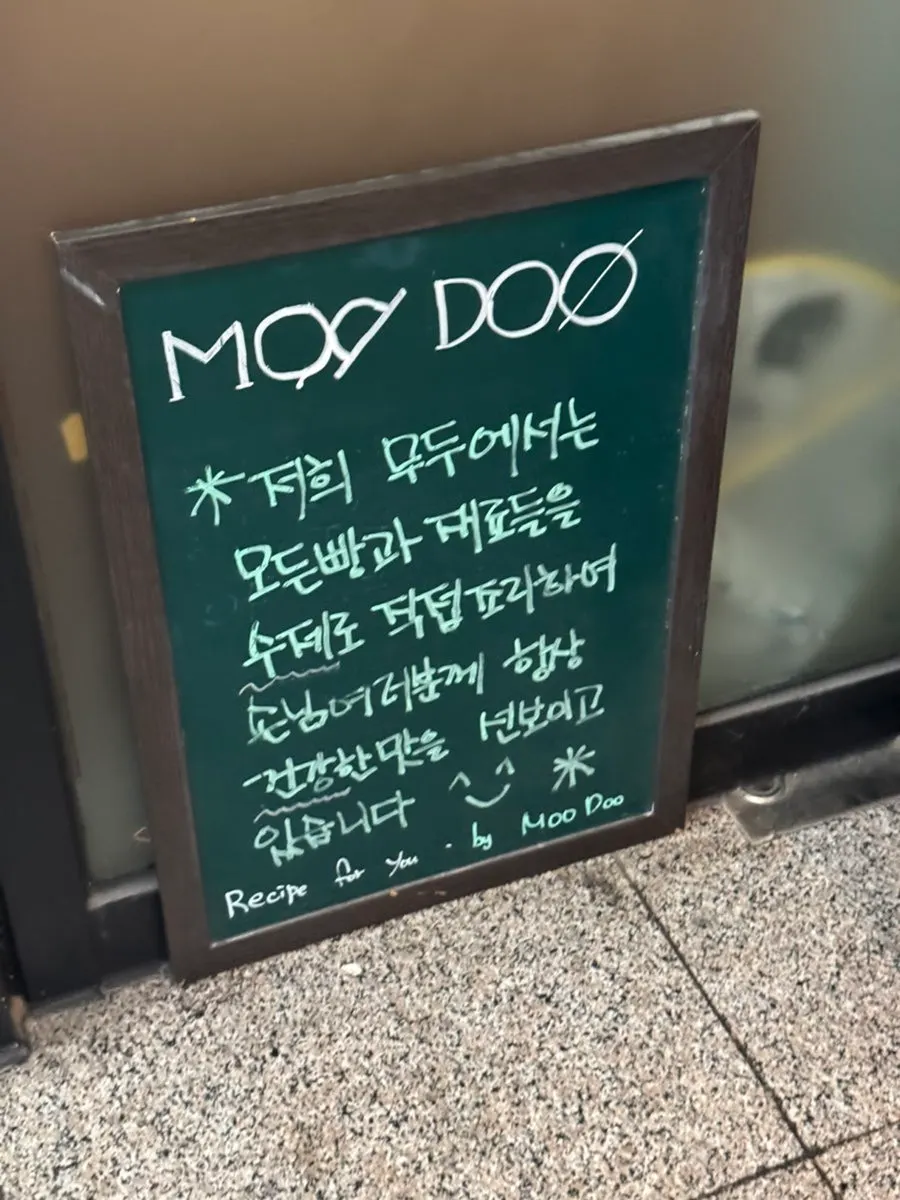 MOO DOO
* 저희 모두에서는
모든빵과 재료들을
수제로 직접조리하여
손님여러분께 항상
건강한맛을 선보이고
있습니다 ^‿^ *
Recipe for you . by MOO DOO